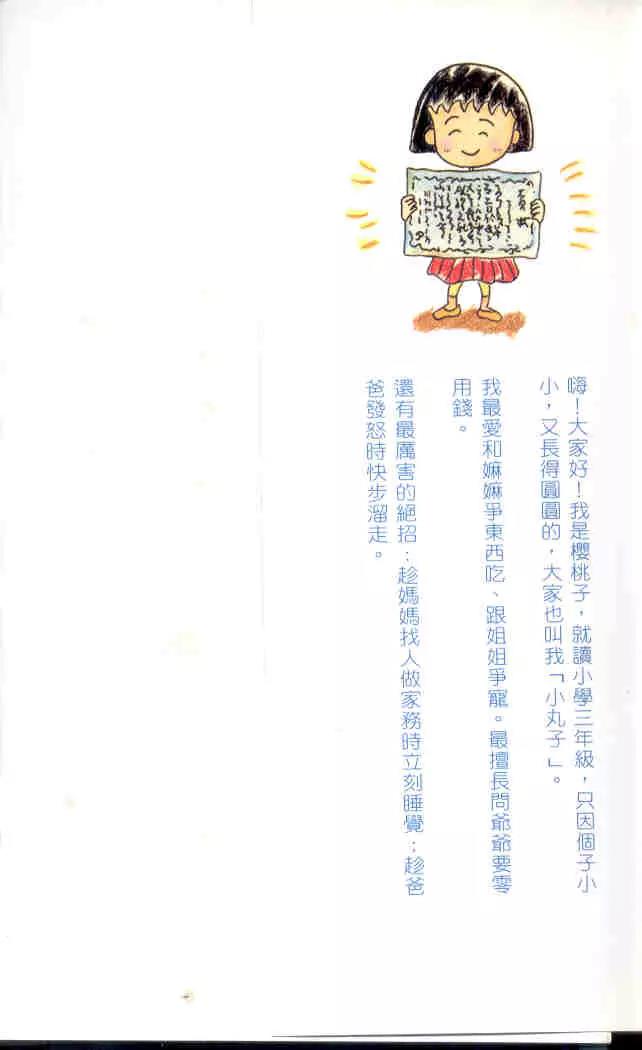 嗨！大家好！我是櫻桃子，就讀小學三年級，只因個子小
小，又長得圓圓的，大家也叫我「小丸子」。
我最愛和嫲嫲爭東西吃、跟姐姐爭寵。最擅長問爺爺要零
用錢。
還有最厲害的絕招：趁媽媽找人做家務時立刻睡覺；趁爸
爸發怒時快步溜走。